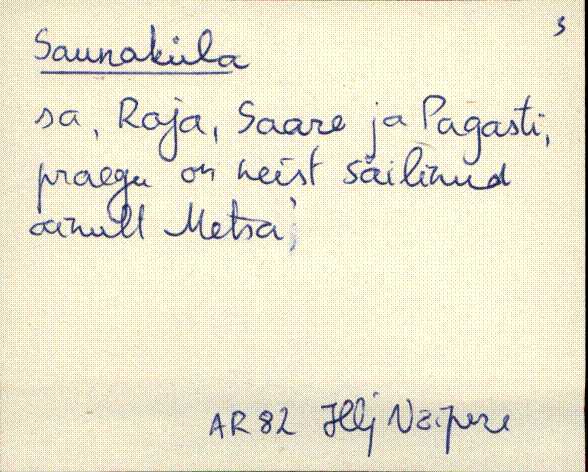 3
Saunaküla
sa, Raja, Saare ja Pagasti,
praegu on neist säilinud
ainult Metsa;
AR 82 Hlj